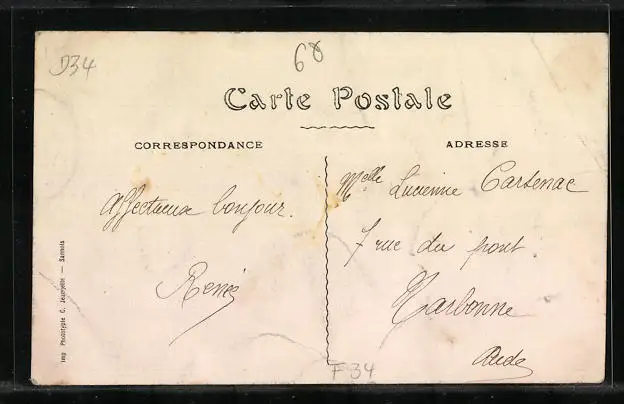 D34
68
Carte Postale
CORRESPONDANCE
ADRESSE
Affectueux bonjour.
René
Melle Lucienne Cartenac
7 rue du pont
Narbonne
Aude
Imp Phototypie C. Jeanjette — Samois
F 34